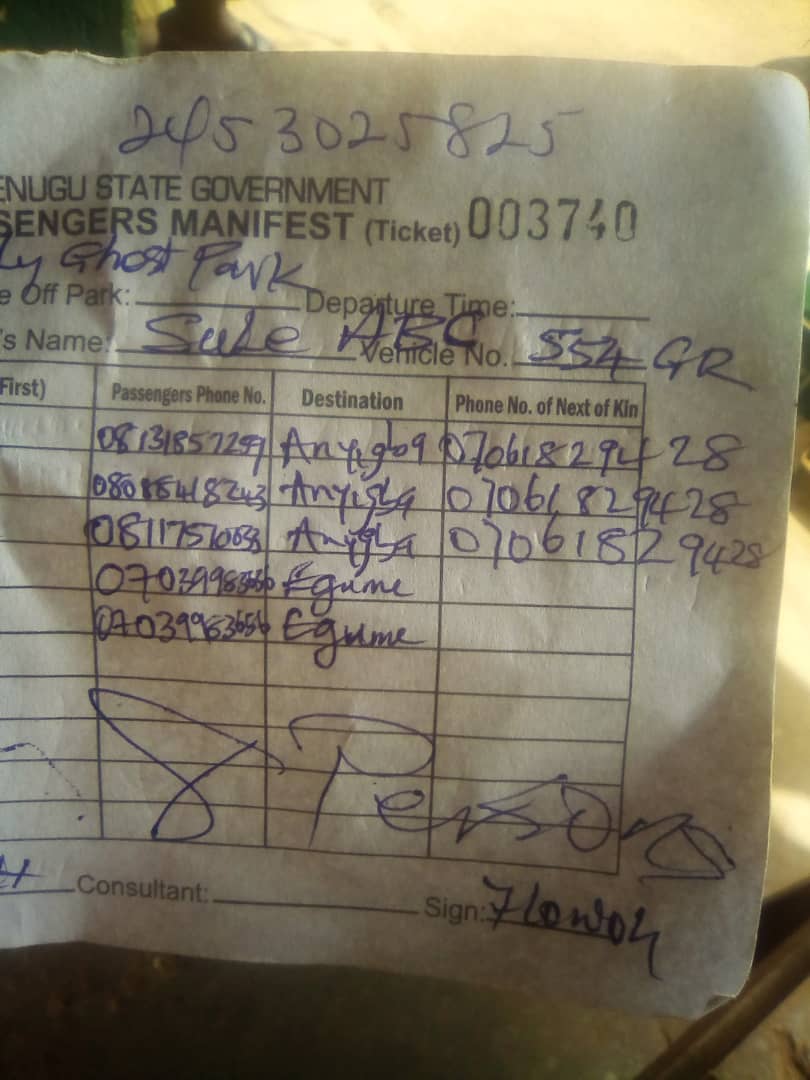 2453025825
ENUGU STATE GOVERNMENT
SENGERS MANIFEST (Ticket) 003740
ly Ghost Park
e Off Park: Departure Time:
's Name: Sule Vehicle No. ABC 554 GR
First) Passengers Phone No. Destination Phone No. of Next of Kin
08131857299 Anyigba 07061829428
Anyigba 07061829428
Anyigba 07061829428
Egume
07039983656 Egume
8 Persons
Consultant: Sign: